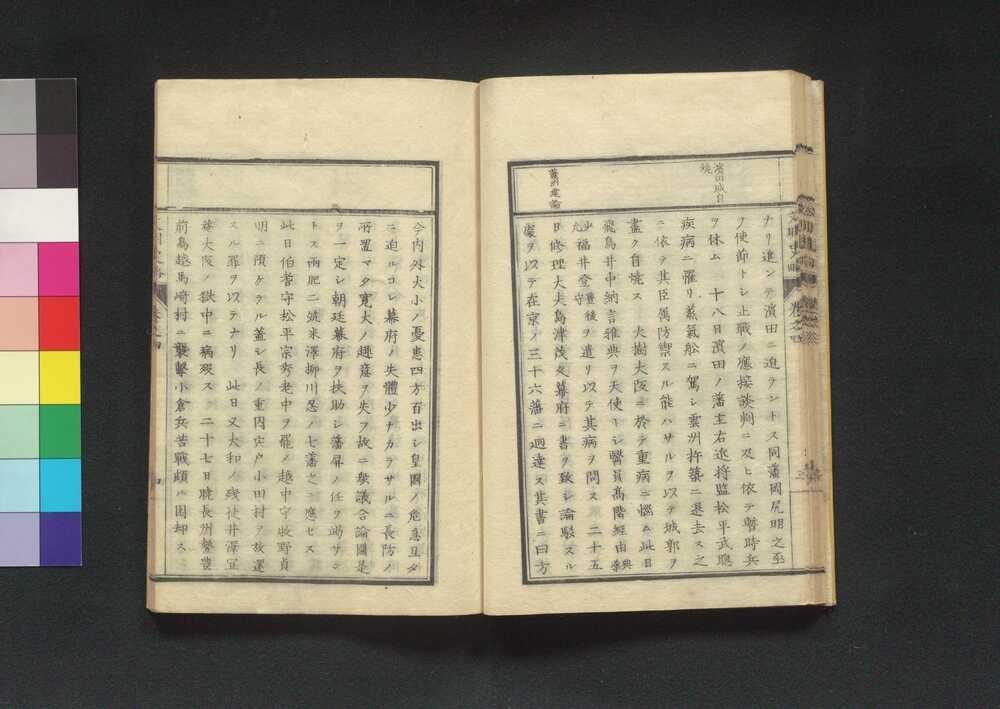 濱田城自
燒
薩州建論
ナリ進ンテ濱田ニ迫ラントス同藩岡尻明之至
ヲ使節トシ止戰ノ應接談判ニ及ヒ依テ暫時兵
ヲ休ム 十八日濱田ノ藩主右近將監松平武聰
疾病ニ罹リ蒸氣船ニ駕シ雲州杵築ニ退去ス之
ニ依テ其臣禺防禦スル能ハサルヲ以テ城郭ヲ
盡ク自燒ス 大樹大阪ニ於テ重病ニ惱ム此日
飛鳥井中納言雅典ヲ天使トシ醫員高階經由典
藥少允福井登豊後守ヲ遣リ以テ其病ヲ問ス 二十五
日修理大夫島津茂久幕府ニ書ヲ致シ論駁スル
處ヲ以テ在京ノ三十六藩ニ廻達ス其書ニ曰方
今内外大小ノ憂患四方百出シ皇國ノ危急旦夕
ニ迫ルコレ幕府ノ失體少ナカラサルニ長防ノ
所置マタ寛大ノ趣意ヲ失フ故ニ衆議合論國是
ヲ一定シ朝廷幕府ヲ扶助シ藩屏ノ任ヲ竭サン
トス兩肥二筑米澤柳川忍ノ七藩之ニ應ヒス
此日伯耆守松平宗秀老中ヲ罷メ越中守牧野貞
明ニ預ケラル蓋シ長ノ重囚宍戸小田村ヲ放還
スル罪ヲ以テナリ 此日又大和ノ殘徒井澤宜
庵大阪ノ獄中ニ病歿ス 二十七日曉長州勢豊
前鳥越馬崎村ニ襲擊小倉兵苦戰頗ル困却ス
文明史略
卷之四
三
四